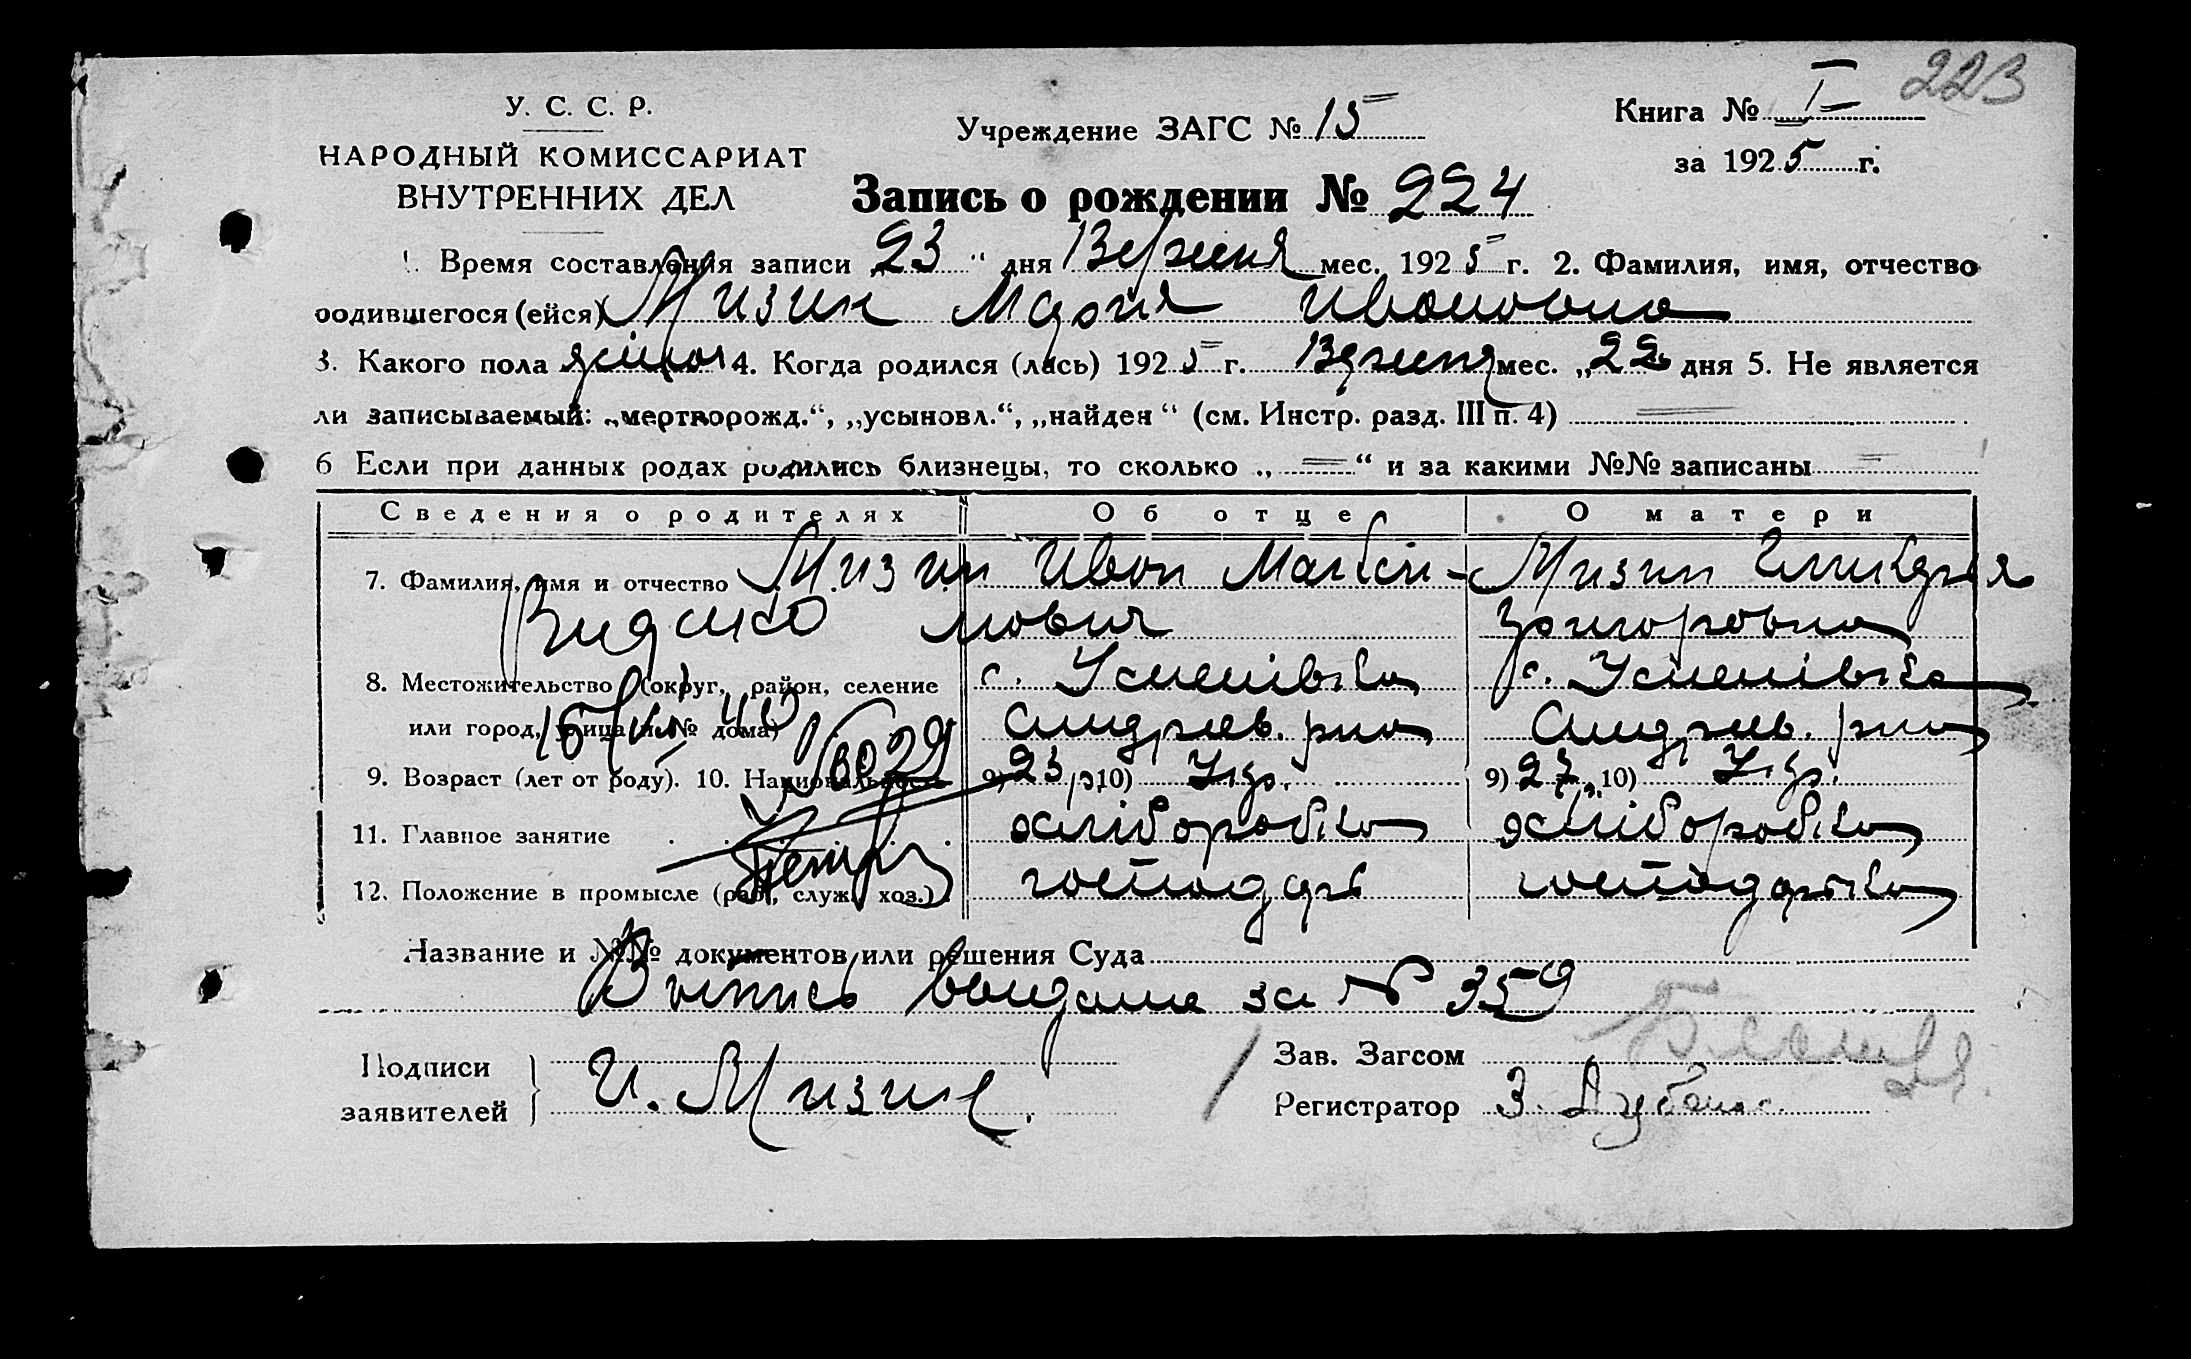 223
У. С. С. Р.
НАРОДНЫЙ КОМИССАРИАТ
ВНУТРЕННИХ ДЕЛ
Учреждение ЗАГС № 15
Книга № I
за 1925 г.
Запись о рождении № 224
1. Время составления записи „23“ дня Вересня мес. 1925 г. 2. Фамилия, имя, отчество
родившегося (ейся) Мизин Мария Ивановна
3. Какого пола 4. Когда родился (лась) 1925 г. Вересня мес. „22 дня 5. Не является
ли записываемый: „мертворожд.“, „усыновл.“, „найден“ (см. Инстр. разд. III п. 4)
6 Если при данных родах родились близнецы, то сколько „ = “ и за какими №№ записаны =
Сведения о родителях Об отце О матери
7. Фамилия, имя и отчество Мизин Иван Максимович Мизин
Видано Григоровна
8. Местожительство (округ, район, селение с. Успенівка с. Успенівка
или город, улица и № дома) Андреев. рну Андреев. рну
9. Возраст (лет от роду). 10. Национальность 9) 23 р. 10) Укр. 9) 27 „ 10) Укр.
11. Главное занятие хлібороб хлібороб
12. Положение в промысле (раб., служ. хоз.) господарь господарька
Название и №№ документов или решения Суда
Витпись видана за № 359
Подписи
заявителей } И. Мизин.
Зав. Загсом
Регистратор З. Дубина